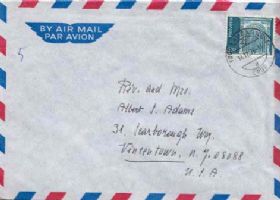 BY AIR MAIL
PAR AVION
5
Rev. and Mrs.
Albert S. Adams
31, Scarborough Wn.
Vincentown, N. J. 08088
U.S.A